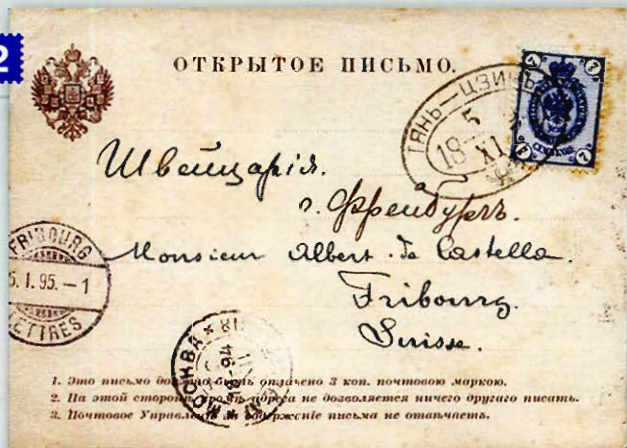 2
ОТКРЫТОЕ ПИСЬМО.
ТЯНЬ—ЦЗИНЬ
5
18 XI
7 7
Швейцарія.
г. Фрейбургъ.
FRIBOURG
5. I. 95. – 1
LETTRES
Monsieur Albert de Castella.
Fribourg.
Suisse.
МОСКВА
1. Это письмо должно быть оплачено 3 коп. почтовою маркою.
2. На этой сторонѣ, кромѣ адреса не дозволяется ничего другаго писать.
3. Почтовое Управленіе за содержаніе письма не отвѣчаетъ.